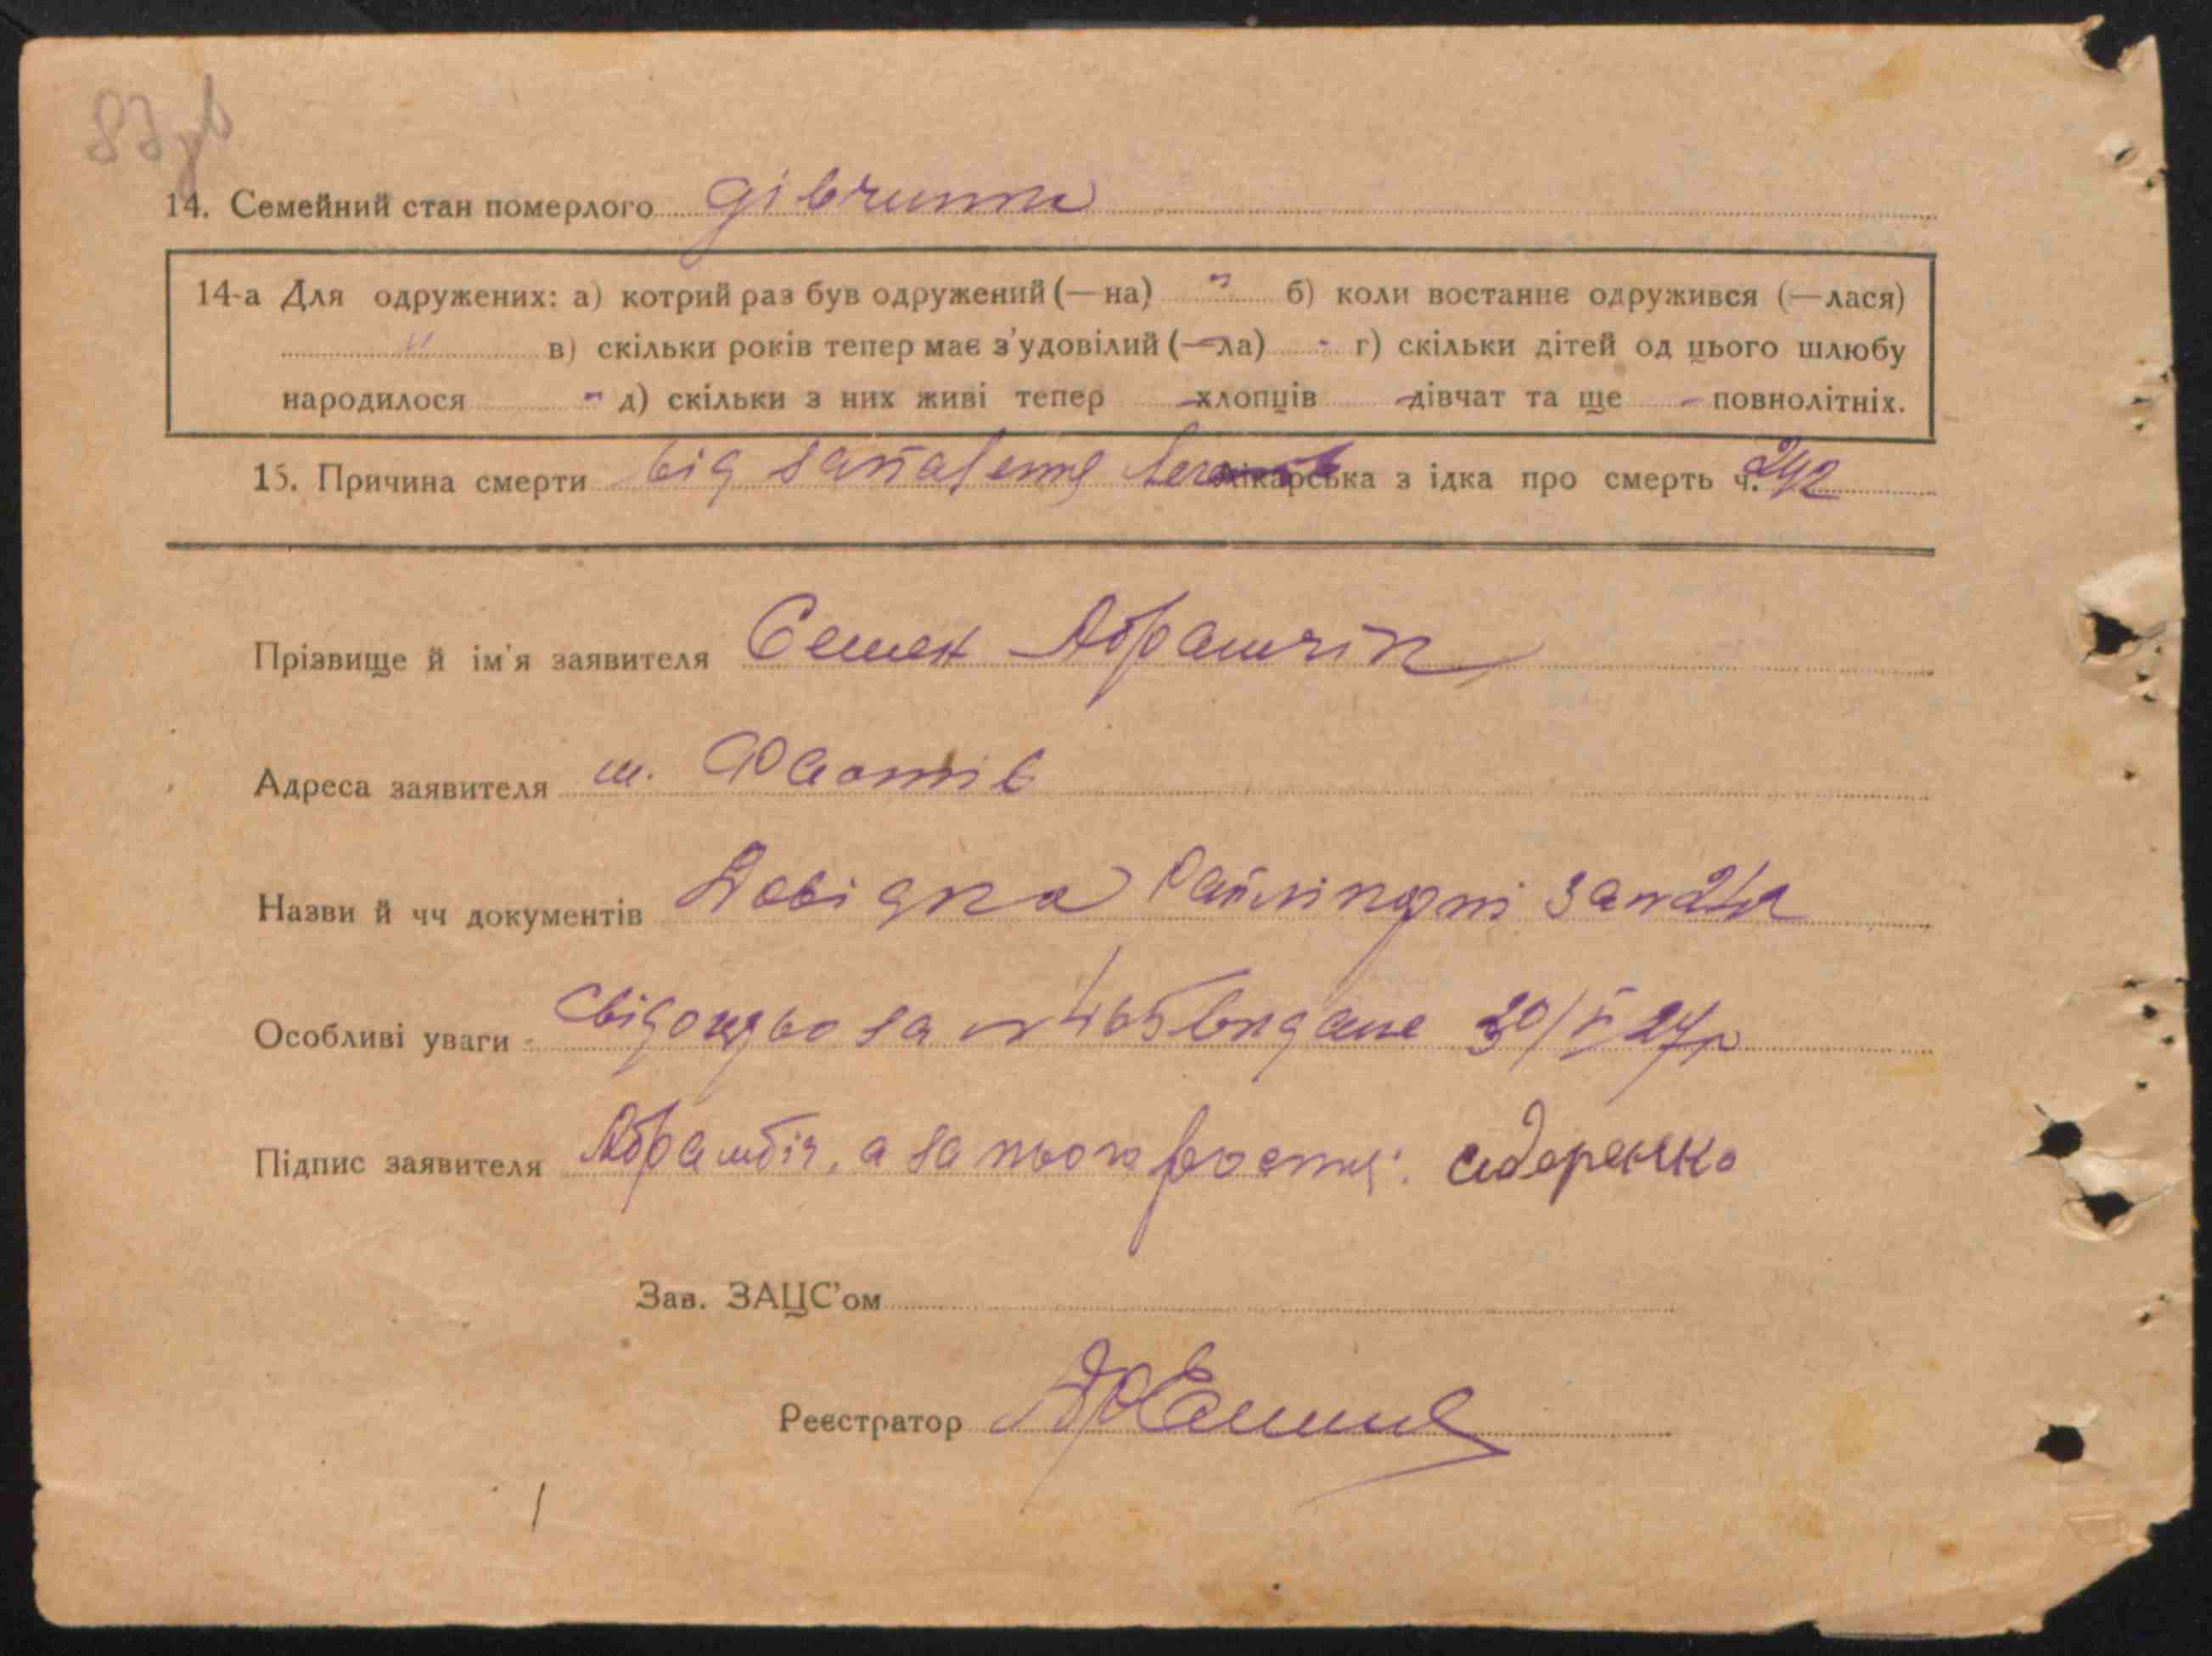 83 зв
14. Семейний стан померлого дівчина
14-а Для одружених: а) котрий раз був одружений (—на) " б) коли востаннє одружився (—лася)
" в) скільки років тепер має з'удовілий (—ла) - г) скільки дітей од цього шлюбу
народилося " д) скільки з них живі тепер - хлопців - дівчат та ще - повнолітніх.
15. Причина смерти від запалення легенів лікарська з ідка про смерть ч. 242
Прізвище й ім'я заявителя Семен Абрамчік
Адреса заявителя м. Фастів
Назви й чч документів Довідка Райлікарні за №
Особливі уваги свідоцтво за № 465 видане 30/V 27р
Підпис заявителя а за нього росты: сидоренко
Зав. ЗАЦС'ом
Реєстратор